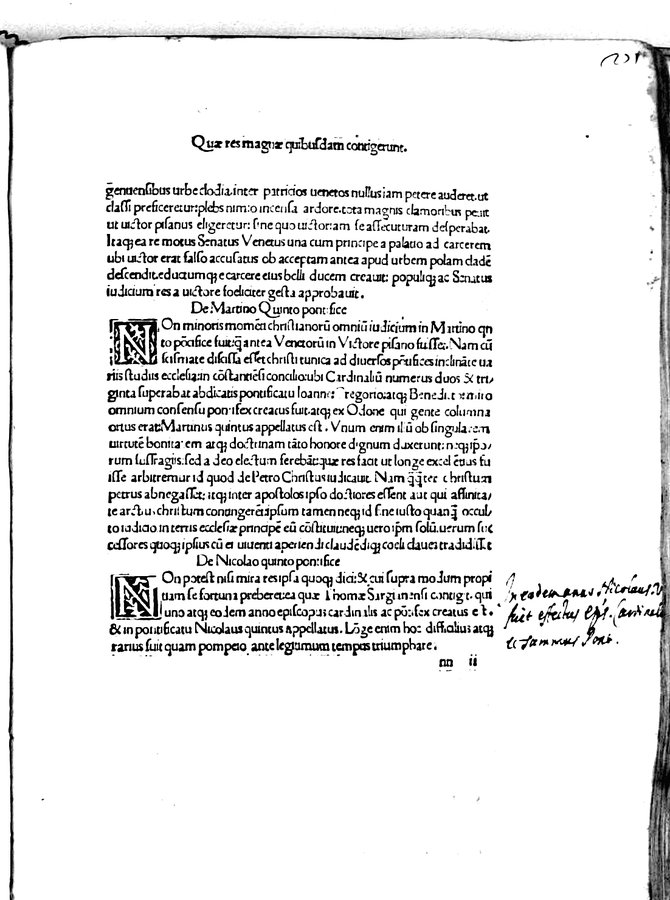 Quæ res magnæ quibusdam contigerunt.
g̃enuensibus urbe clodia. inter patricios uenetos nullus iam petere auderet. ut
classi preficeretur: plebs nimio incensa ardore. tota magnis clamoribus petiit
ut uictor pisanus eligeretur: sine quo uictoriam se assecuturam desperabat.
Itaq; ea re motus Senatus Venetus una cum principe a palatio ad carcerem
ubi uictor erat falso accusatus ob acceptam antea apud urbem polam cladẽ
descendit. eductumq; e carcere eius belli ducem creauit: populiq; ac Senatus
iudicium res a uictore foeliciter gesta approbauit.
De Martino Quinto pontifice
NOn minoris momẽti christianorũ omniũ iudicium in Martino qn
to põtifice fuit: q̃ antea Venetorũ in Victore pisano fuisset. Nam cũ
scismate diffissa esset christi tunica ad diuersos põtifices inclinãte ua
riis studiis ecclesia: in cõstantiẽsi concilio: ubi Cardinaliũ numerus duos & tri
ginta superabat abdicatis pontificatu Ioanne Gregorio: atq; Benedicto
omnium consensu pontifex creatus fuit. atq; ex Odone qui gente columna
ortus erat: Martinus quintus appellatus est. Vnum enim illũ ob singularem
uirtutẽ bonitatem atq; doctrinam tãto honore dignum duxerunt: neq; ipso
rum suffragiis: sed a deo electum ferebãt: quæ res facit ut longe excellẽtius fu
isse arbitremur id quod de Petro Christus iudicauit. Nam q̃q̃ ter christum
petrus abnegasset: itq; inter apostolos ipso doctiores essent aut qui affinita
te arctius christum contingerẽt: ipsum tamen neq; id sine iusto quanq̃ occul
to iudicio in terris ecclesiæ principẽ eũ cõstituit: neq; uero ip̃m solũ. uerum suc
cessores quoq; ipsius cũ ei uiuenti aperiendi claudẽdiq; coeli claues tradidisset
De Nicolao quinto pontifice
NOn potest nisi mira res ipsa quoq; dici: & cui supra modum propi
tiam se fortuna prebere tea quæ Thomæ Sarginensi contigit. qui
uno atq; eodem anno episcopus cardinalis ac põtifex creatus est.
& in pontificatu Nicolaus quintus appellatus. Lõge enim hoc difficilius atq;
rarius fuit quam pompeio ante legitimum tempus triumphare.
nn ii
In eodem anno Nicolaus V
fuit effectus Eps. Cardinalis
et summus Pont.